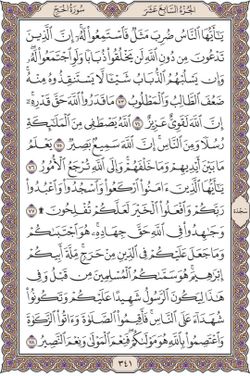 سُورَةُ الحَجِّ
الجُزْءُ السَّابِعَ عَشَرَ
يَٰٓأَيُّهَا ٱلنَّاسُ ضُرِبَ مَثَلٌ فَٱسْتَمِعُوا۟ لَهُۥٓ إِنَّ ٱلَّذِينَ
تَدْعُونَ مِن دُونِ ٱللَّهِ لَن يَخْلُقُوا۟ ذُبَابًا وَلَوِ ٱجْتَمَعُوا۟ لَهُۥ
وَإِن يَسْلُبْهُمُ ٱلذُّبَابُ شَيْـًٔا لَّا يَسْتَنقِذُوهُ مِنْهُ
ضَعُفَ ٱلطَّالِبُ وَٱلْمَطْلُوبُ ٧٣ مَا قَدَرُوا۟ ٱللَّهَ حَقَّ قَدْرِهِۦٓ
إِنَّ ٱللَّهَ لَقَوِىٌّ عَزِيزٌ ٧٤ ٱللَّهُ يَصْطَفِى مِنَ ٱلْمَلَٰٓئِكَةِ
رُسُلًا وَمِنَ ٱلنَّاسِ إِنَّ ٱللَّهَ سَمِيعٌۢ بَصِيرٌ ٧٥ يَعْلَمُ
مَا بَيْنَ أَيْدِيهِمْ وَمَا خَلْفَهُمْ وَإِلَى ٱللَّهِ تُرْجَعُ ٱلْأُمُورُ ٧٦
يَٰٓأَيُّهَا ٱلَّذِينَ ءَامَنُوا۟ ٱرْكَعُوا۟ وَٱسْجُدُوا۟ وَٱعْبُدُوا۟
رَبَّكُمْ وَٱفْعَلُوا۟ ٱلْخَيْرَ لَعَلَّكُمْ تُفْلِحُونَ ۩ ٧٧
وَجَٰهِدُوا۟ فِى ٱللَّهِ حَقَّ جِهَادِهِۦ هُوَ ٱجْتَبَىٰكُمْ
وَمَا جَعَلَ عَلَيْكُمْ فِى ٱلدِّينِ مِنْ حَرَجٍ مِّلَّةَ أَبِيكُمْ
إِبْرَٰهِيمَ هُوَ سَمَّىٰكُمُ ٱلْمُسْلِمِينَ مِن قَبْلُ وَفِى
هَٰذَا لِيَكُونَ ٱلرَّسُولُ شَهِيدًا عَلَيْكُمْ وَتَكُونُوا۟
شُهَدَآءَ عَلَى ٱلنَّاسِ فَأَقِيمُوا۟ ٱلصَّلَوٰةَ وَءَاتُوا۟ ٱلزَّكَوٰةَ
وَٱعْتَصِمُوا۟ بِٱللَّهِ هُوَ مَوْلَىٰكُمْ فَنِعْمَ ٱلْمَوْلَىٰ وَنِعْمَ ٱلنَّصِيرُ ٧٨
سجدة
٣٤١